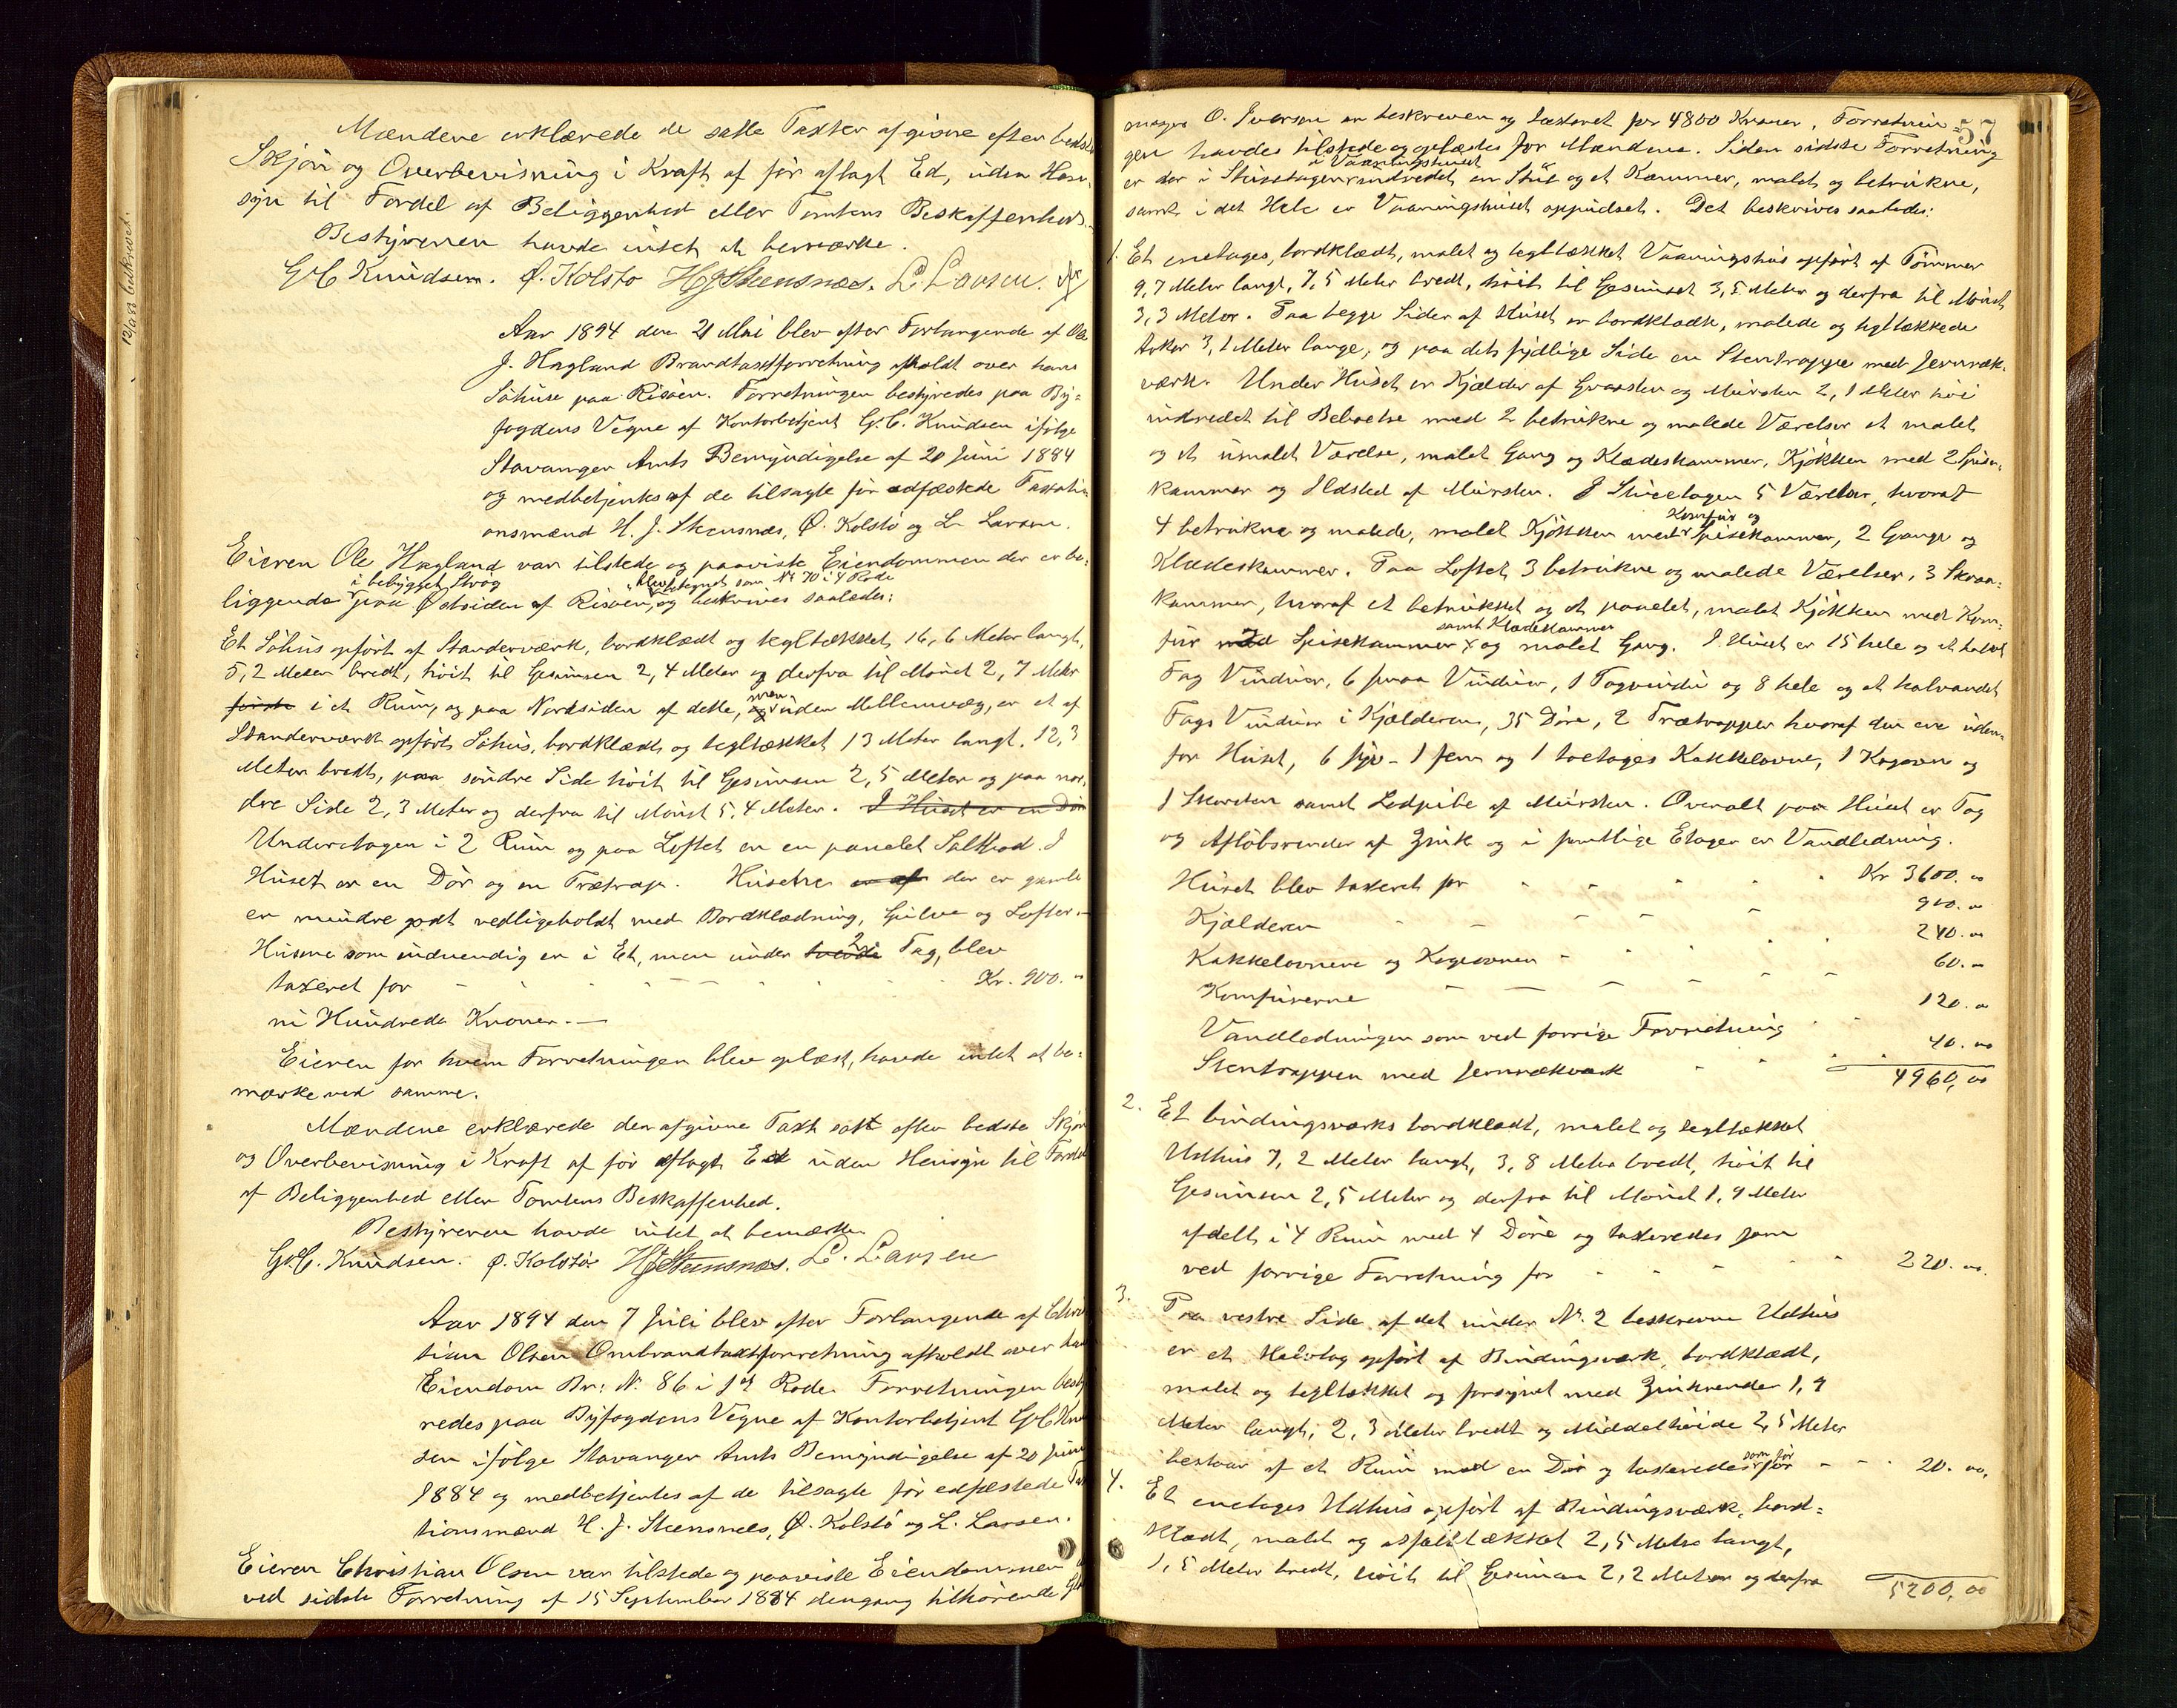 12/1 83 beskrevet.
Mændene erklærede de satte Taxter afgivne efter bedste
Skjøn og Overbevisning i Kraft af før aflagt Ed, uden Hen-
syn til Fordel af Beliggenhed eller Tomtens Beskaffenhed.
Bestyreren havde intet at bemærke.
G. C. Knudsen. Ø. Kolstø H J Steensnæs. L. Larsen.
Aar 1894 den 21 Mai blev efter Forlangende af Ole
J. Hagland Brandtaxtforretning afholdt over hans
Söhuse paa Risøen. Forretningen bestyredes paa By=
fogdens Vegne af Kontorbetjent G. C. Knudsen ifølge
Stavanger Amts Bemyndigelse af 20 Juni 1884
og medbetjentes af de tilsagte før edfæstede Taxati-
onsmænd H. J. Steensnæs, Ø. Kolstø og L. Larsen.
Eieren Ole Hagland var tilstede og paaviste Eiendommen der er be=
i bebygget Strøg blev betegnet som No 70 i 4 Rode
liggende paa Østsiden af Risøen, og beskrives saaledes:
Et Söhus opført af Standerværk, bordklædt og tegltækket, 16,6 Meter langt,
5,2 Meter bredt, høit til Gesimsen 2,4 Meter og derfra til Mønet 2,7 Meter
men
i et Rum, og paa Nordsiden af dette, uden Mellemvæg, er et af
Standerværk opført Söhus, bordklædt og tegltækket 13 Meter langt, 12,3
Meter bredt, paa søndre Side høit til Gesimsen 2,5 Meter og paa nor-
dre Side 2,3 Meter og derfra til Mønet 5,4 Meter. I Huset er en Dør
Underetagen i 2 Rum og paa Loftet er en panelet Saltbod. I
Huset er en Dør og en Trætrap. Husene er af der er gamle
er mindre godt vedligeholdt med Bordklædning, Gulve og Lofter.
Husene som indvendig er i Et, men under 2de Tag, blev
taxeret for - - - - - Kr. 900. "
ni Hundrede Kroner. —
Eieren for hvem Forretningen blev oplæst, havde intet at be=
mærke ved samme.
Mændene erklærede den afgivne Taxt sat efter bedste Skjøn
og Overbevisning i Kraft af før aflagt Ed uden Hensyn til Fordel
af Beliggenhed eller Tomtens Beskaffenhed.
Bestyreren havde intet at bemærke.
G. C. Knudsen. Ø. Kolstø. H J Steensnæs. L. Larsen
Aar 1894 den 7 Juli blev efter Forlangende af Chris
tian Olsen Ombrandtaxtforretning afholdt over hans
Eiendom Br: No 86 i 1st Rode. Forretningen besty
redes paa Byfogdens Vegne af Kontorbetjent G. C. Knud
sen ifølge Stavanger Amts Bemyndigelse af 20 Juni
1884 og medbetjentes af de tilsagte før edfæstede Taxa
tionsmænd H. J. Steensnæs, Ø. Kolstø og L. Larsen.
Eieren Christian Olsen var tilstede og paaviste Eiendommen
ved sidste Forretning af 15 September 1884 dengang tilhørende
57
mager O. Iversen er beskreven og taxeret for 4800 Kroner. Forretnin-
gen havdes tilstede og oplæstes for Mændene. Siden sidste Forretning
i Vaaningshuset
er der i Stueetagen indredet en Stue og et Kammer, malet og betrukne,
samt i det Hele er Vaaningshuset oppudset. Det beskrives saaledes:
1. Et enetages, bordklædt, malet og tegltækket Vaaningshus opført af Tømmer
9,7 Meter langt, 7,5 Meter bredt, høit til Gesimset 3,5 Meter og derfra til Mønet
3,3 Meter. Paa begge Sider af Huset er bordklædte, malede og tegltækkede
Arker 3,1 Meter lange, og paa dets sydlige Side en Stentrappe med Jernræk-
værk. Under Huset er Kjælder af Graasten og Mursten 2,1 Meter høi
indredet til Beboelse med 2 betrukne og malede Værelser et malet
og et umalet Værelse, malet Gang og Klædeskammer, Kjøkken med 2 Spise-
kammer og Ildsted af Mursten. I Stueetagen 5 Værelser, hvoraf
Komfur og
4 betrukne og malede, malet Kjøkken med Spisekammer, 2 Gange og
Klædeskammer. Paa Loftet 3 betrukne og malede Værelser, 3 Skraa=
kammer, hvoraf et betrukket og et panelet, malet Kjøkken med Kom=
samt Klædeskammer
fur med Spisekammer og malet Gang. I Huset er 15 hele og et halvt
Fag Vinduer, 6 smaa Vinduer, 1 Tagvindu og 8 hele og et halvandet
Fags Vinduer i Kjælderen, 35 Döre, 2 Trætrapper hvoraf den ene uden-
for Huset, 6 syv- 1 fem og 1 toetages Kakkelovne, 1 Kogeovn og
1 Skorsten samt Ledpibe af Mursten. Overalt paa Huset er Tag
og Afløbsrender af Zink og i samtlige Etager er Vandledning.
Huset blev taxeret for - - - - Kr 3600. "
Kjælderen - - - - 900. "
Kakkelovnene og Kogeovnen - - - 240. "
Komfurerne - - - - 60. "
Vandledningen som ved forrige Forretning - - 120. "
Stentrappen med Jernrækværk - - - 40. "
4960, 00
2. Et bindingsværks bordklædt, malet og tegltækket
Udhus 7,2 Meter langt, 3,8 Meter bredt, høit til
Gesimsen 2,5 Meter og derfra til Mønet 1,9 Meter
afdelt i 4 Rum med 4 Döre og taxeredes som
ved forrige Forretning for - - - - 220. "
3. Paa vestre Side af det under No. 2 beskrevne Udhus
er et Halvtag opført af Bindingsværk, bordklædt,
malet og tegltækket og forsynet med Zinkrender 1,9
Meter langt, 2,3 Meter bredt og Middelhøide 2,5 Meter
som før
bestaar af et Rum med en Dør og taxeredes for - - - 20. "
4. Et enetages Udhus opført af Bindingsværk, bord=
klædt, malet og asfalttækket 2,5 Meter langt,
1,5 Meter bredt, høit til Gesimsen 2,2 Meter og derfra
5200, 00